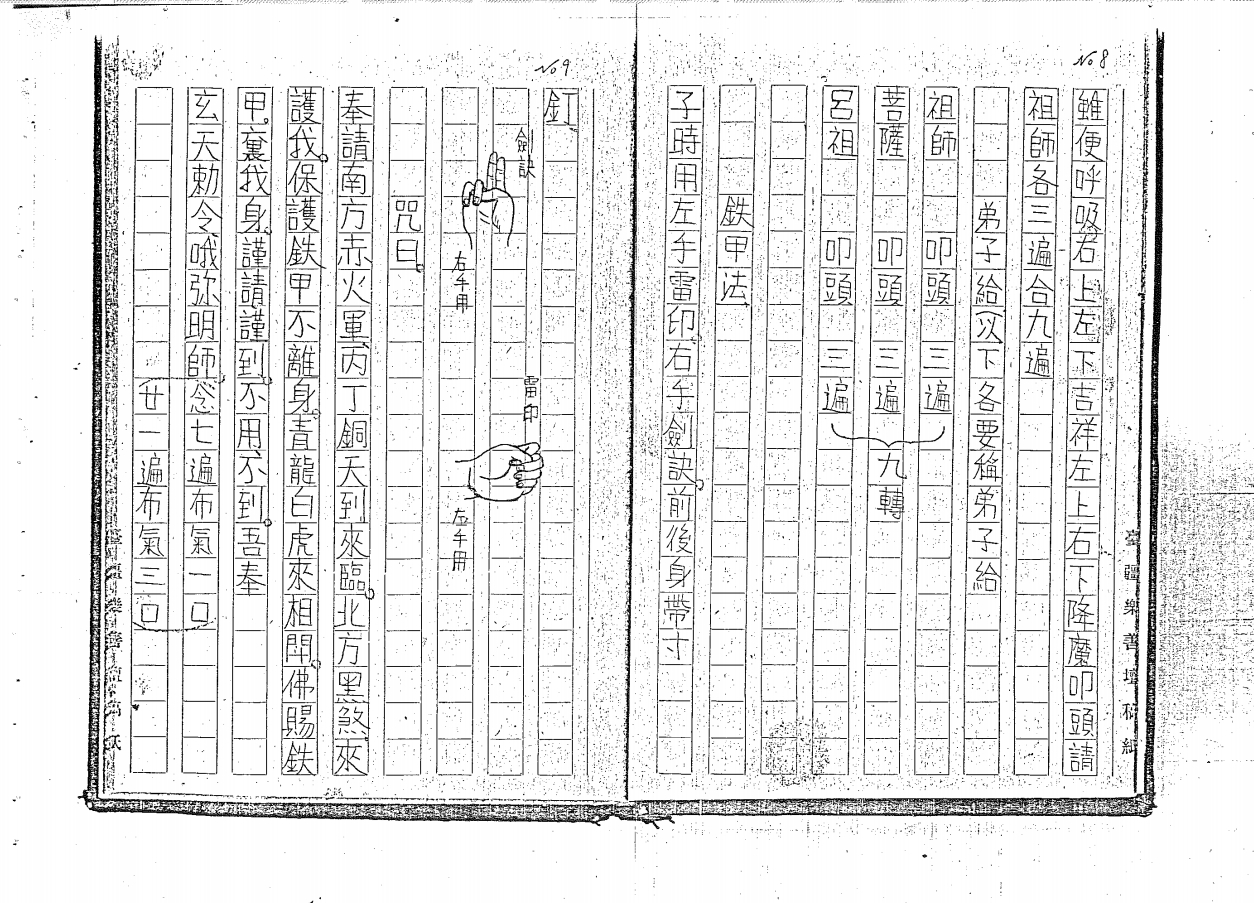 No 8
雖便呼吸右上左下吉祥左上右下降魔叩頭請
祖師各三遍合九遍
弟子給(以下各要稱弟子給
祖師 叩頭 三遍
菩薩 叩頭 三遍 九轉
呂祖 叩頭 三遍
鉄甲法
子時用左手雷印。右手劍訣。前後身帶寸
臺疆樂善壇稿紙
No 9
釘
劍訣
右手用
雷印
左手用
咒曰。
奉請南方赤火軍、丙丁銅天到來臨。北方黑煞來
護我。保護鉄甲不離身。青龍白虎來相閗。佛賜鉄
甲。裏我身。謹請謹到。不用不到。吾奉
玄天勅令、哦弥明師念七遍布氣一口
廿一遍布氣三口